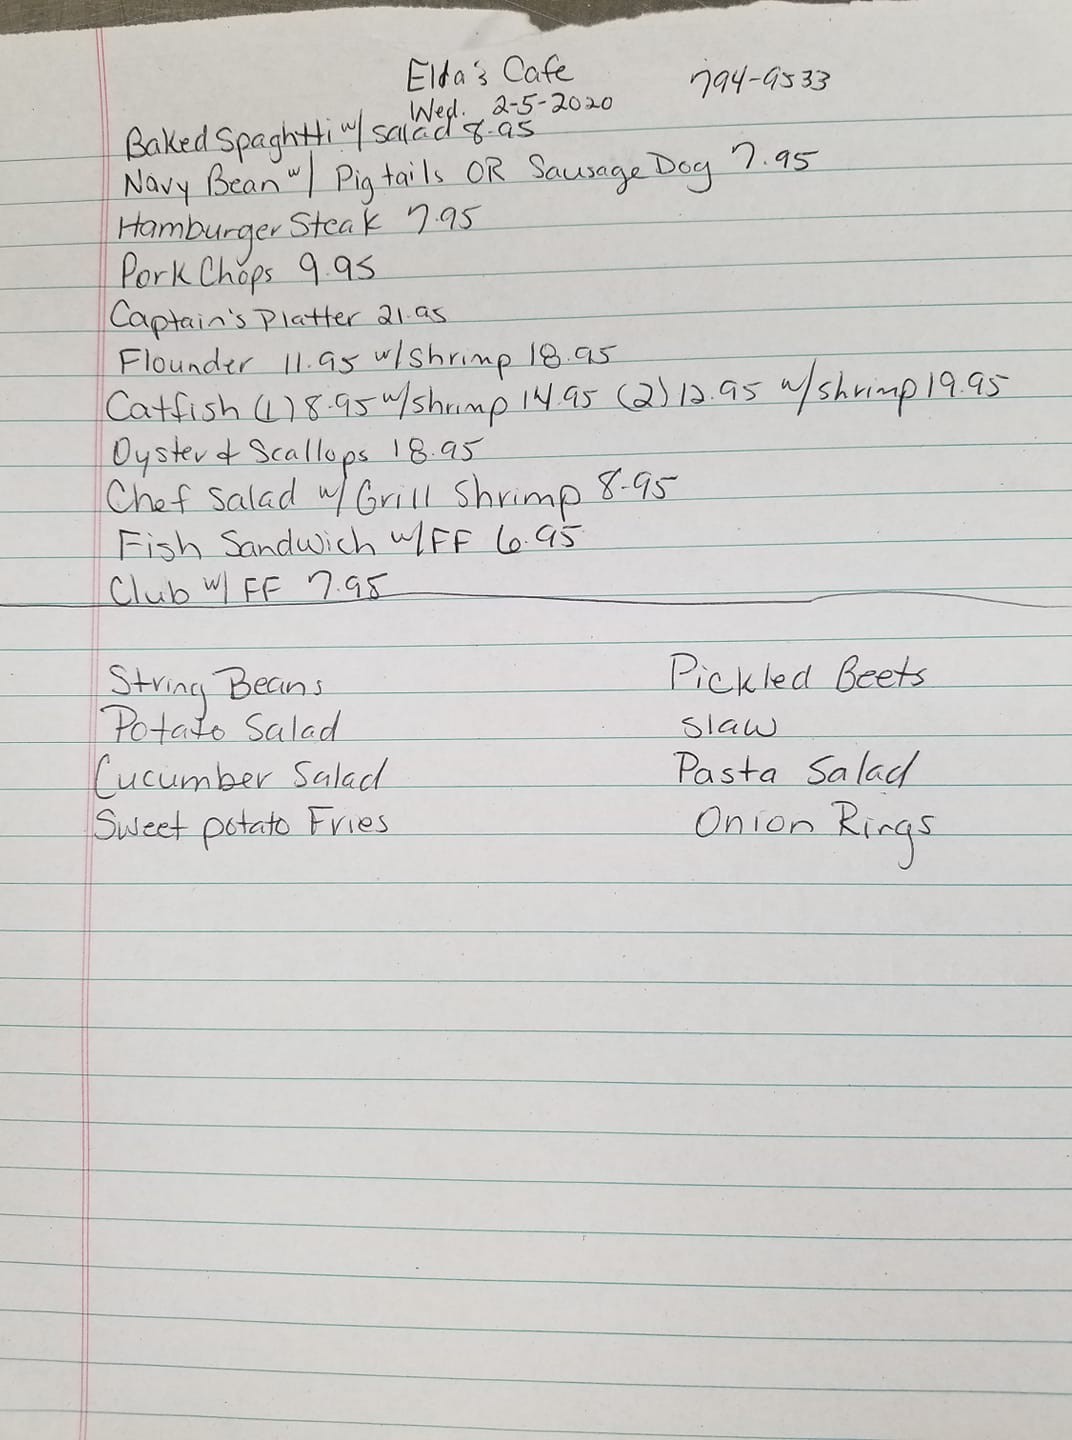 Elda's Cafe 794-9533
Wed. 2-5-2020
Baked Spaghtti w/ salad 8.95
Navy Bean w/ Pigtails OR Sausage Dog 7.95
Hamburger Steak 7.95
Pork Chops 9.95
Captain's Platter 21.95
Flounder 11.95 w/shrimp 18.95
Catfish (1) 8.95 w/shrimp 14.95 (2) 12.95 w/shrimp 19.95
Oyster & Scallops 18.95
Chef Salad w/ Grill Shrimp 8.95
Fish Sandwich w/FF 6.95
Club w/ FF 7.95
String Beans Pickled Beets
Potato Salad Slaw
Cucumber Salad Pasta Salad
Sweet potato Fries Onion Rings